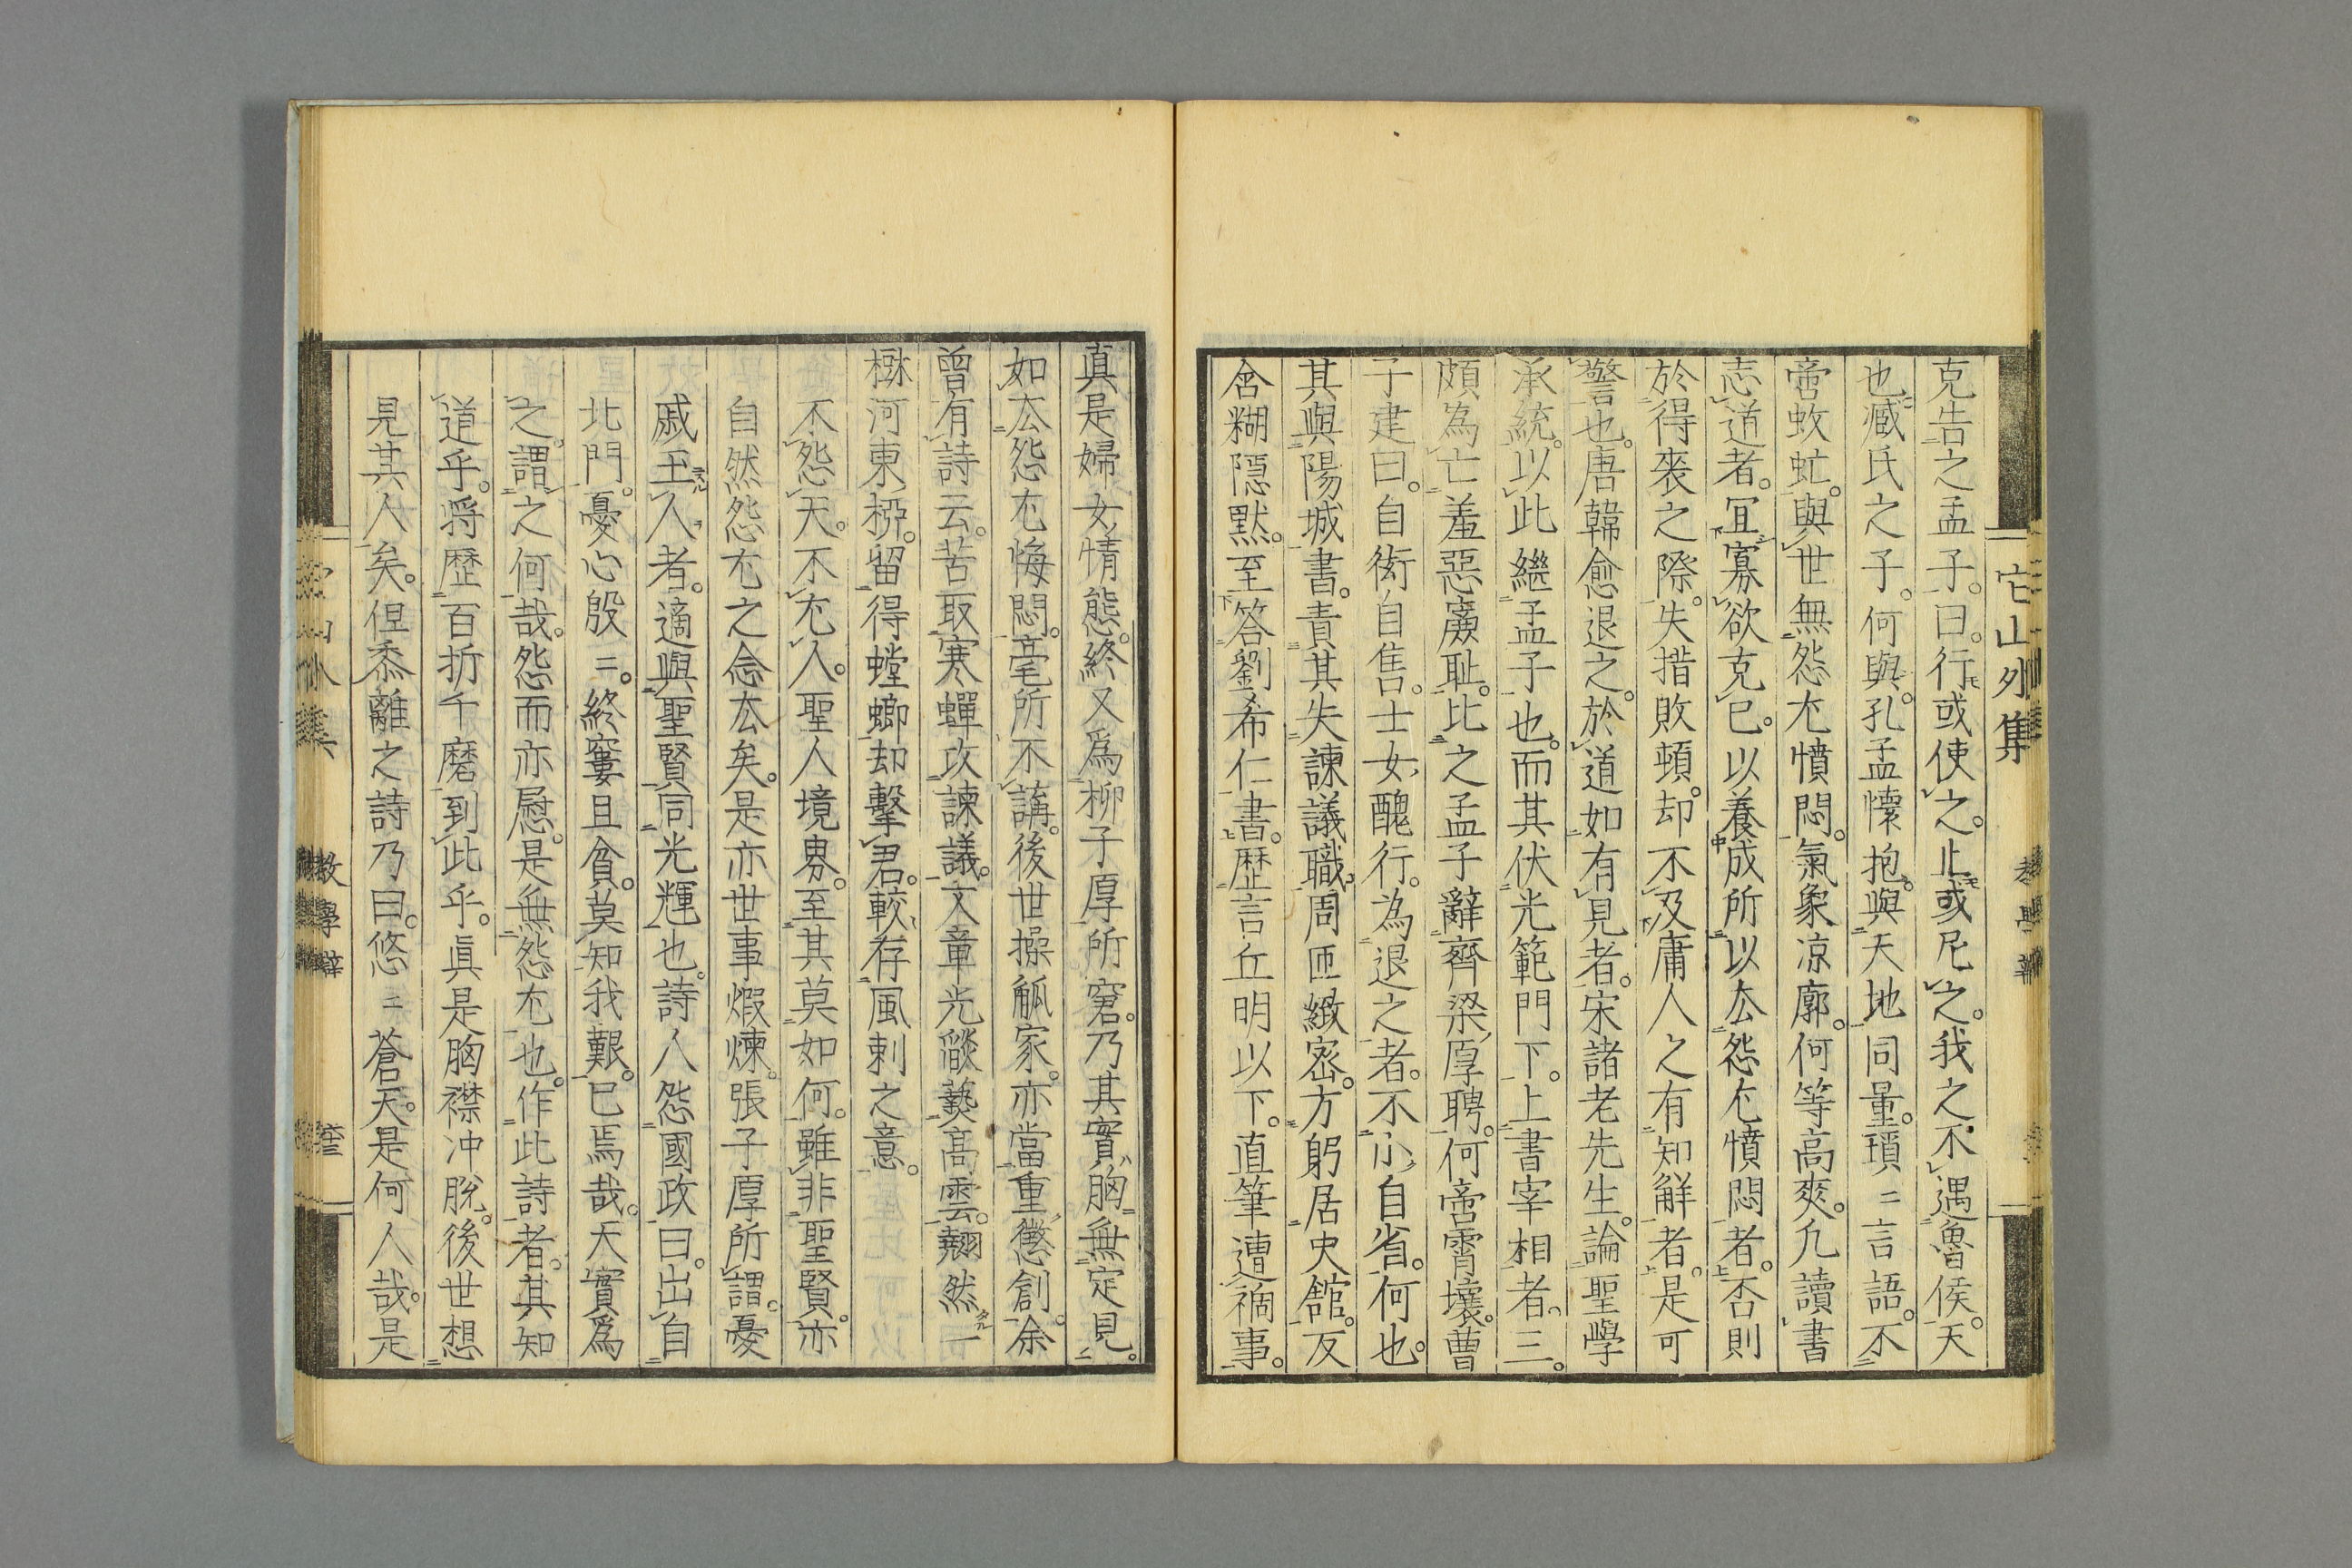 克告之孟子。曰。行或使之。止或尼之。我之不遇魯侯。天
也。臧氏之子。何與。孔孟懷抱。與天地同量。瑣〻言語。不
啻蚊虻。與世無怨尤憤悶。氣象凉廓。何等高爽。凡讀書
志道者。宜寡欲克已。以養成所以厺怨尤憤悶者。否則
於得喪之際。失措敗頓。却不及庸人之有知觧者。是可
警也。唐韓愈退之。於道如有見者。宋諸老先生。論聖學
承統。以此繼孟子也。而其伏光範門下。上書宰相者。三。
頗為亡羞惡廉耻。比之孟子辭齊梁厚聘。何啻霄壤。曹
子建曰。自衒自售。士女醜行。為退之者。不小自省。何也。
其與陽城書。責其失諫議職。周匝緻密。方躬居史舘。反
含糊隱默。至答劉希仁書。歴言丘明以下。直筆遭禍事。
它山外集
真是婦女情態。終又為柳子厚所窘。乃其實胸無定見。
如厺怨尤悔悶。毫所不講。後世操觚家。亦當重懲創。余
曾有詩云。苦取寒蟬攻諫議。文章光燄藝髙雲。翹然一
檄河東椏。留得螳螂却擊君。較存風刺之意。
不怨天。不尤人。聖人境界。至其莫如何。雖非聖賢。亦
自然怨尤之念厺矣。是亦世事煆煉。張子厚所謂。憂
戚玉人者。適與聖賢同光輝也。詩人怨國政曰。出自
北門。憂心殷〻。終窶且貧。莫知我艱。已焉哉。天實為
之。謂之何哉。怨而亦慰。是無怨尤也。作此詩者。其知
道乎。将歴百折千磨。到此乎。眞是胸襟冲脫。後世想
見其人矣。但黍離之詩乃曰。悠〻蒼天。是何人哉。是
教學辯